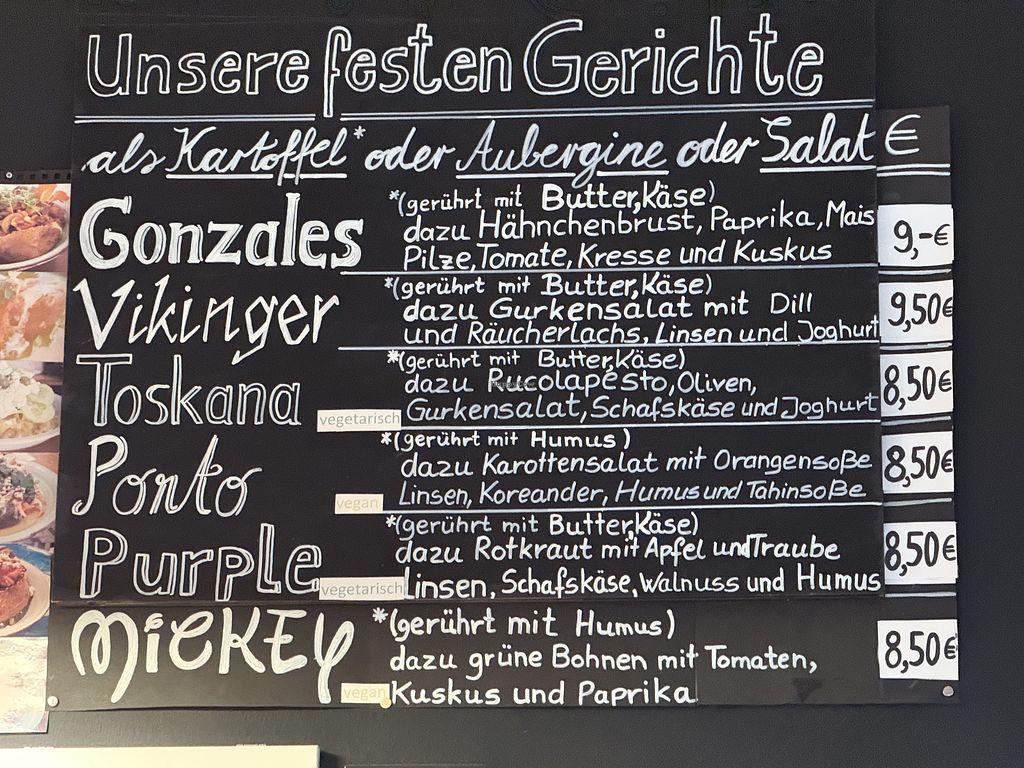 Unsere festen Gerichte
als Kartoffel* oder Aubergine oder Salat €
Gonzales
*(gerührt mit Butter,Käse)
dazu Hähnchenbrust, Paprika, Mais
Pilze, Tomate, Kresse und Kuskus
9,-€
Vikinger
*(gerührt mit Butter,Käse)
dazu Gurkensalat mit Dill
und Räucherlachs, Linsen und Joghurt
9,50€
Toskana
vegetarisch
*(gerührt mit Butter,Käse)
dazu Rucolapesto, Oliven,
Gurkensalat, Schafskäse und Joghurt
8,50€
Porto
vegan
*(gerührt mit Humus)
dazu Karottensalat mit Orangensoße
Linsen, Koreander, Humus und Tahinsoße
8,50€
Purple
vegetarisch
*(gerührt mit Butter,Käse)
dazu Rotkraut mit Apfel und Traube
Linsen, Schafskäse, Walnuss und Humus
8,50€
MiCKEy
vegan
*(gerührt mit Humus)
dazu grüne Bohnen mit Tomaten,
Kuskus und Paprika
8,50€